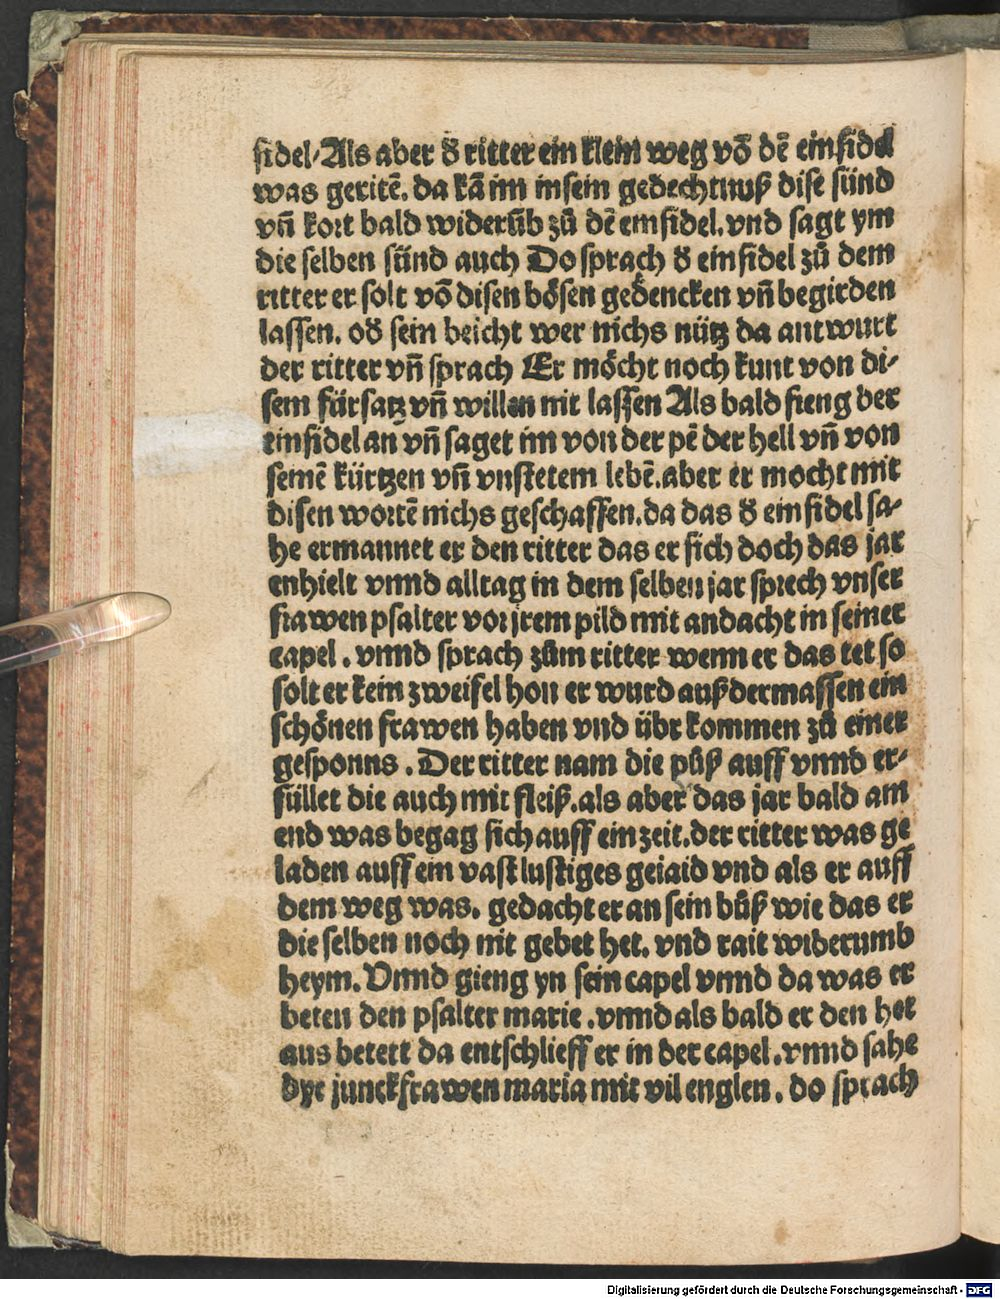 sidel/Als aber d̕ ritter ein klein weg võ dẽ einsidel
was geritẽ. da kã im in sein gedechtnuß dise sünd
vñ kort bald widerũb zů dẽ einsidel. vnd sagt ym
die selben sünd auch Do sprach d̕ einsidel zů dem
ritter er solt võ disen bösen gedencken vñ begirden
lassen. od̕ sein beicht wer nichs nütz da antwurt
der ritter vñ sprach Er möcht noch kunt von di⸗
sem fürsatz vñ willen nit lassen Als bald fieng der
einsidel an vñ saget im von der pẽ der hell vñ von
seinẽ kürtzen vñ vnstetem lebẽ. aber er mocht mit
disen wortẽ nichs geschaffen. da das d̕ einsidel sa⸗
he ermannet er den ritter das er sich doch das jar
enhielt vnnd alltag in dem selben jar sprech vnser
frawen psalter vor jrem pild mit andacht in seiner
capel. vnnd sprach zům ritter wenn er das tet so
solt er kein zweifel hon er wurd außdermassen ein
schönen frawen haben vnd übr kommen zů einer
gesponns. Der ritter nam die půß auff vnnd er⸗
füllet die auch mit fleiß. als aber das jar bald am
end was begag sich auff ein zeit. der ritter was ge
laden auff ein vast lustiges geiaid vnd als er auff
dem weg was. gedacht er an sein bůß wie das er
die selben noch nit gebet het. vnd rait widerumb
heym. Vnnd gieng yn sein capel vnnd da was er
beten den psalter marie. vnnd als bald er den het
aus betett da entschlieff er in der capel. vnnd sahe
dye junckfrawen maria mit vil englen. do sprach
Digitalisierung gefördert durch die Deutsche Forschungsgemeinschaft - DFG